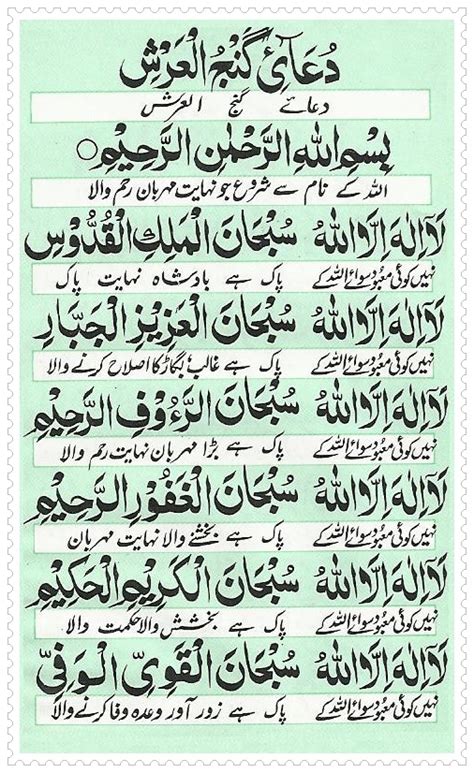 دُعَآئِ گَنْجُ الْعَرْش
دعائے گنج العرش
بِسْمِ اللهِ الرَّحْمٰنِ الرَّحِيْمِ
اللہ کے نام سے شروع جو نہایت مہربان رحم والا
لَآ اِلٰهَ اِلَّا اللهُ سُبْحَانَ الْمَلِكِ الْقُدُّوْسِ
نہیں کوئی معبود سوائے اللہ کے پاک ہے بادشاہ نہایت پاک
لَآ اِلٰهَ اِلَّا اللهُ سُبْحَانَ الْعَزِيْزِ الْجَبَّارِ
نہیں کوئی معبود سوائے اللہ کے پاک ہے غالب بگاڑ کا اصلاح کرنے والا
لَآ اِلٰهَ اِلَّا اللهُ سُبْحَانَ الرَّءُوْفِ الرَّحِيْمِ
نہیں کوئی معبود سوائے اللہ کے پاک ہے بڑا مہربان نہایت رحم والا
لَآ اِلٰهَ اِلَّا اللهُ سُبْحَانَ الْغَفُوْرِ الرَّحِيْمِ
نہیں کوئی معبود سوائے اللہ کے پاک ہے بخشنے والا نہایت مہربان
لَآ اِلٰهَ اِلَّا اللهُ سُبْحَانَ الْكَرِيْمِ الْحَكِيْمِ
نہیں کوئی معبود سوائے اللہ کے پاک ہے بخشش والا حکمت والا
لَآ اِلٰهَ اِلَّا اللهُ سُبْحَانَ الْقَوِيِّ الْوَفِيِّ
نہیں کوئی معبود سوائے اللہ کے پاک ہے زور آور وعدہ وفا کرنے والا